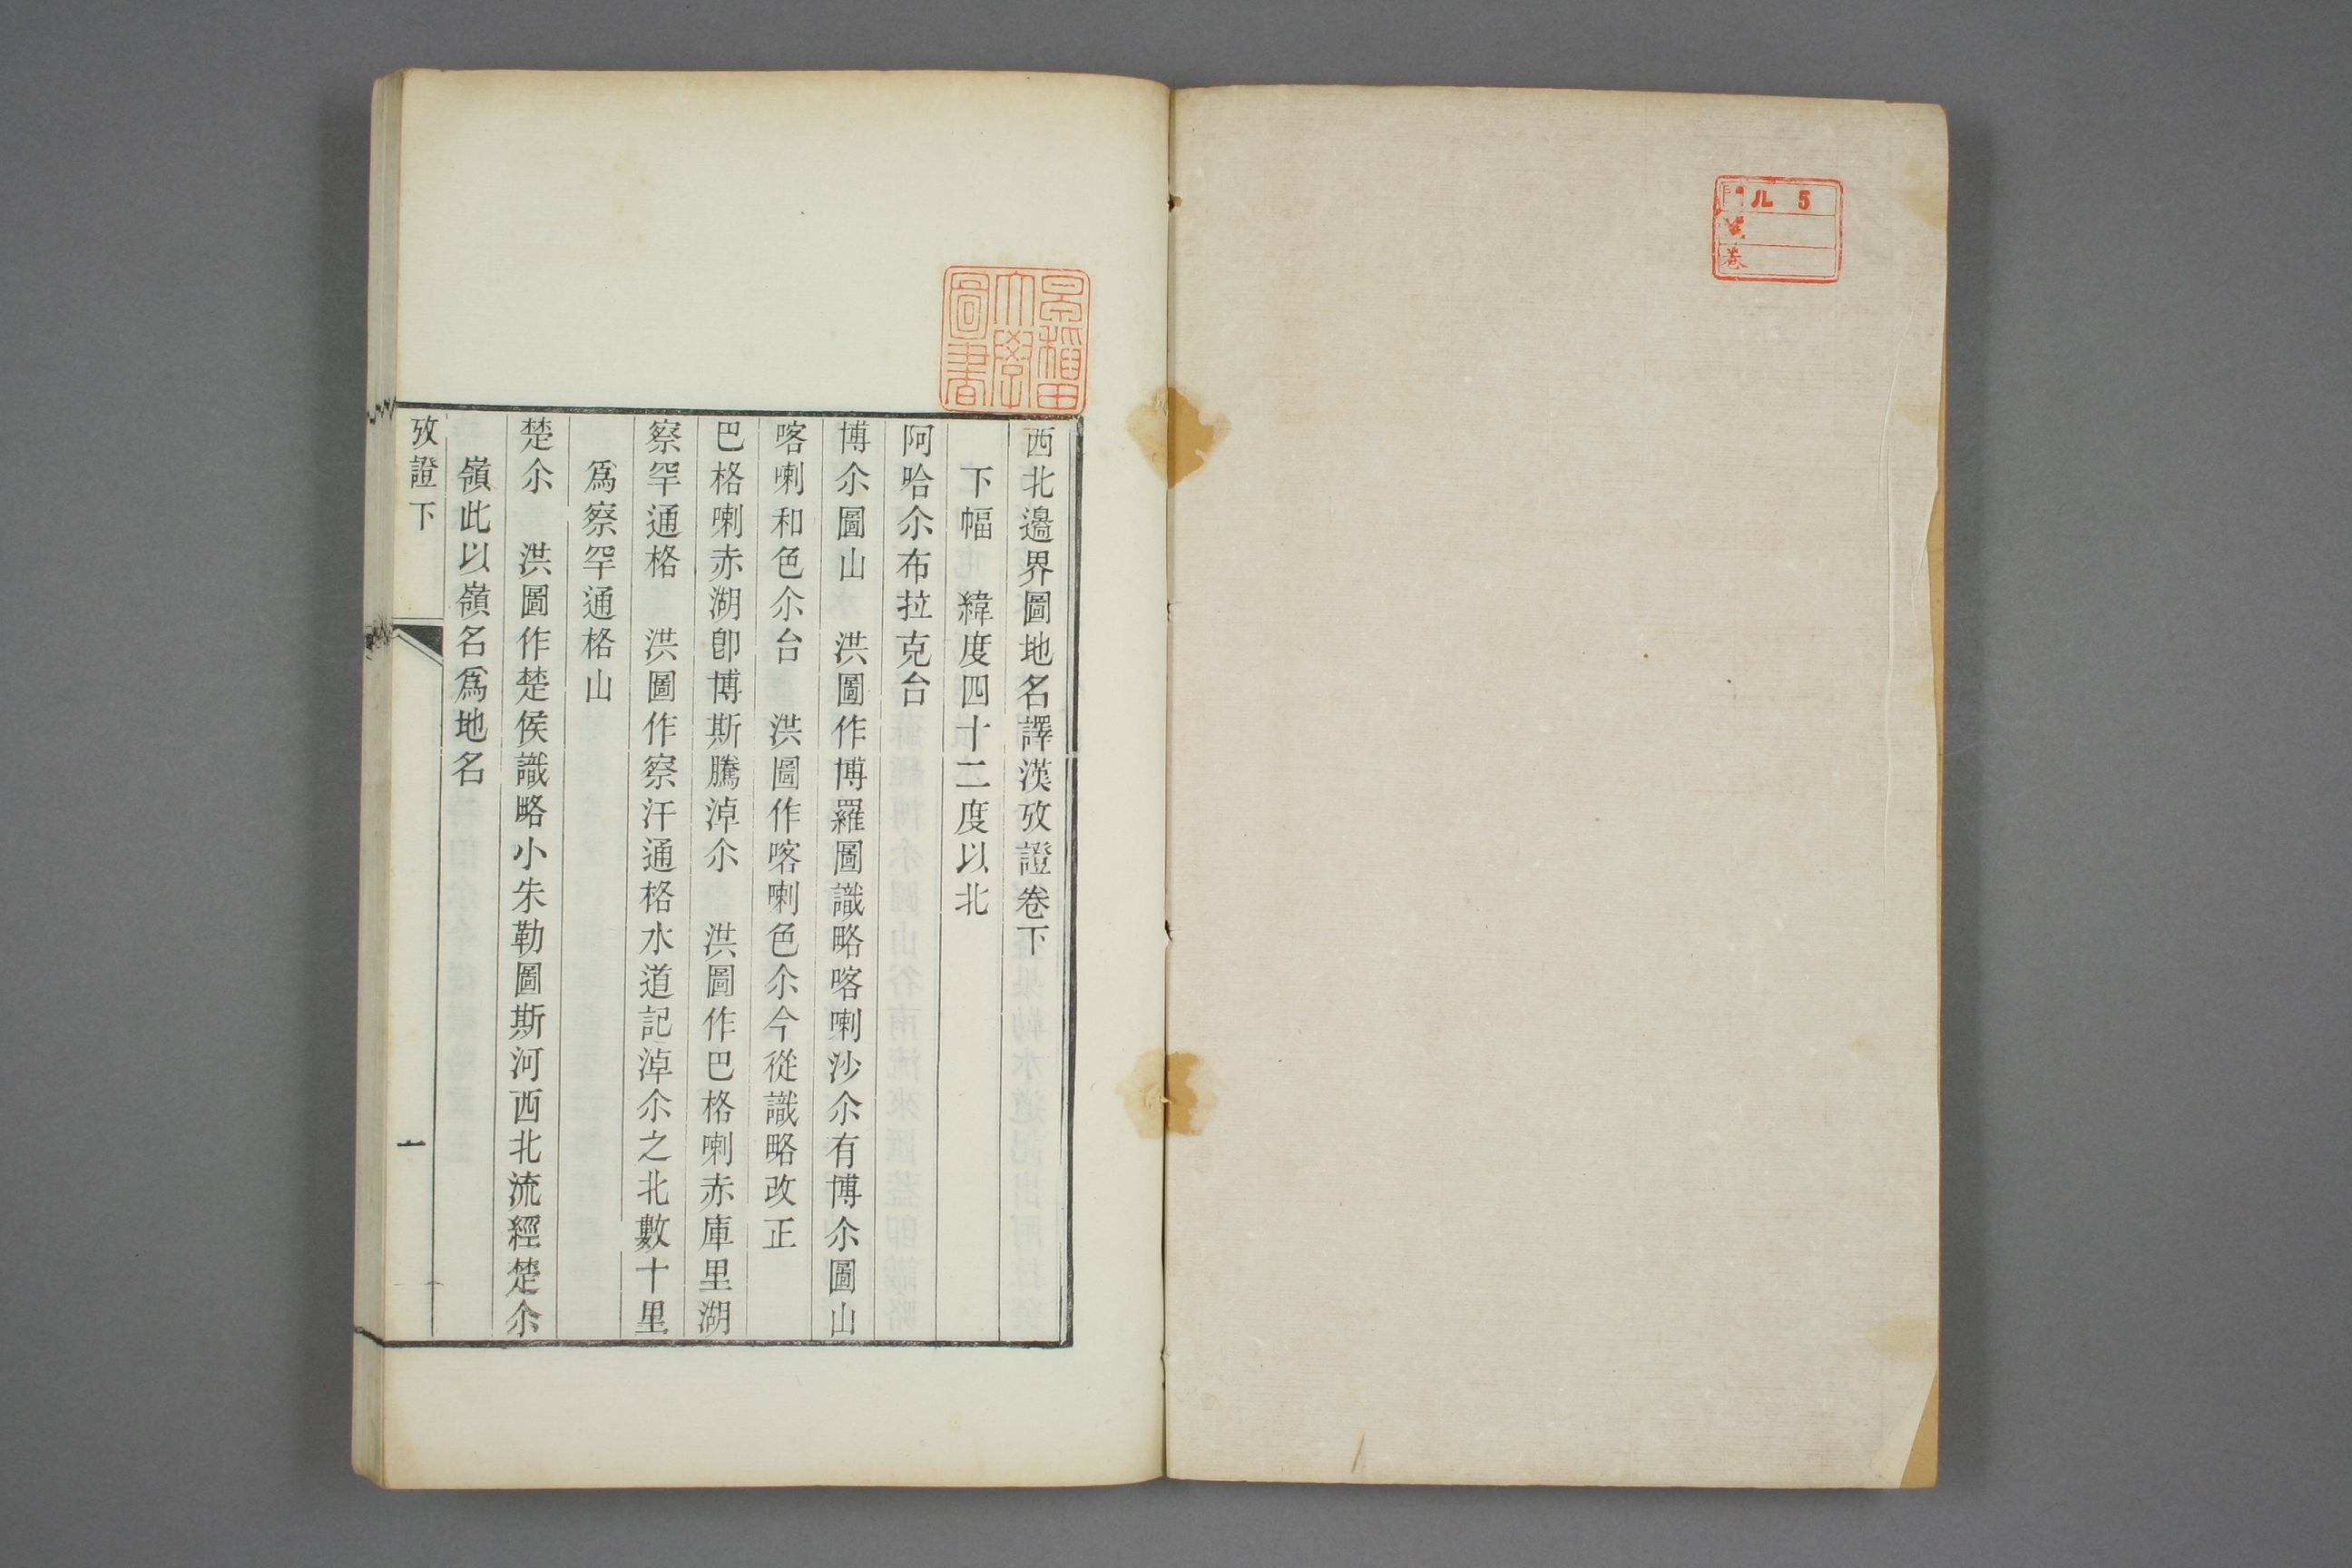 門 ル 5
號
巻
早稲田
大學
圖書
西北邊界圖地名譯漢攷證卷下
下幅 緯度四十二度以北
阿哈尒布拉克台
博尒圖山 洪圖作博羅圖識略喀喇沙尒有博尒圖山
喀喇和色尒台 洪圖作喀喇色尒今從識略改正
巴格喇赤湖卽博斯騰淖尒 洪圖作巴格喇赤庫里湖
察罕通格 洪圖作察汗通格水道記淖尒之北數十里
爲察罕通格山
楚尒 洪圖作楚侯識略小朱勒圖斯河西北流經楚尒
嶺此以嶺名爲地名
攷證下
一